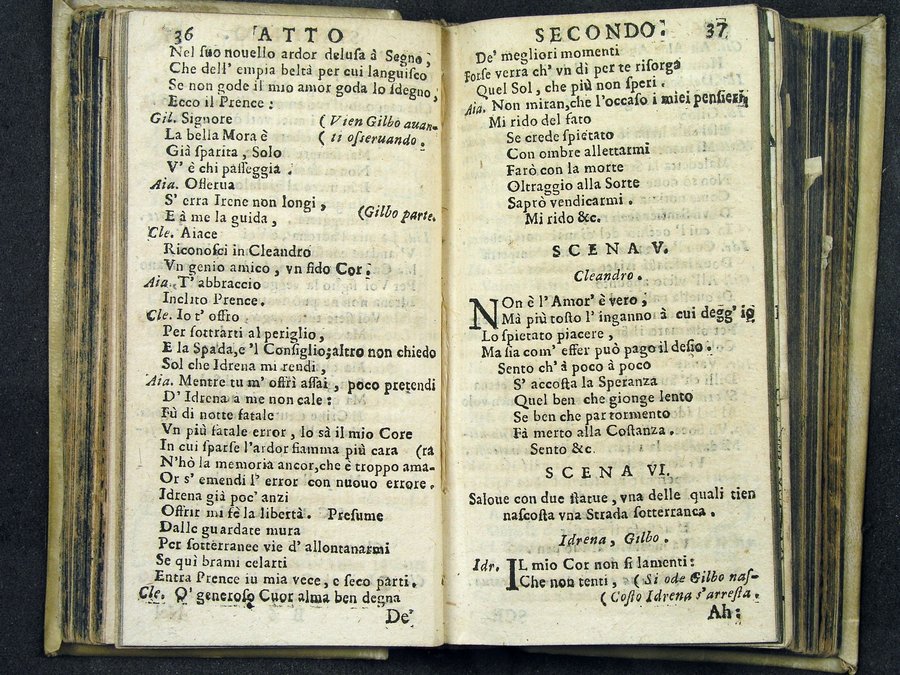 36 ATTO
Nel suo nouello ardor delusa à Segno,
Che dell' empia beltà per cui languisco
Se non gode il mio amor goda lo sdegno,
Ecco il Prence :
Gil. Signore (Vien Gilbo auan-
La bella Mora è ( ti osseruando.
Già sparita, Solo
V' è chi passeggia.
Aia. Osserua
S' erra Irene non longi,
E à me la guida, (Gilbo parte.
Cle. Aiace
Riconosci in Cleandro
Vn genio amico, vn fido Cor.
Aia. T' abbraccio
Inclito Prence.
Cle. Io t' offro
Per sottrarti al periglio,
E la Spada, e 'l Consiglio; altro non chiedo
Sol che Idrena mi rendi,
Aia. Mentre tu m' offri assai, poco pretendi
D' Idrena a me non cale:
Fù di notte fatale
Vn più fatale error, lo sà il mio Core
In cui sparse l'ardor fiamma più cara (ra
N'hò la memoria ancor, che è troppo ama-
Or s' emendi l' error con nuouo errore.
Idrena già poc' anzi
Offrir mi fè la libertà. Presume
Dalle guardate mura
Per sotterranee vie d' allontanarmi
Se qui brami celarti
Entra Prence iu mia vece, e seco parti.
Cle. O' generoso Cuor alma ben degna
De'
SECONDO. 37
De' megliori momenti
Forse verra ch' vn dì per te risorga
Quel Sol, che più non speri.
Aia. Non miran, che l'occaso i miei pensieri
Mi rido del fato
Se crede spietato
Con ombre allettarmi
Farò con la morte
Oltraggio alla Sorte
Saprò vendicarmi.
Mi rido &c.
SCENA V.
Cleandro.
NOn è l' Amor' è vero,
Mà più tosto l'inganno à cui degg' io
Lo spietato piacere,
Ma sia com' esser può pago il desio.
Sento ch' à poco à poco
S' accosta la Speranza
Quel ben che gionge lento
Se ben che par tormento
Fà merto alla Costanza.
Sento &c.
SCENA VI.
Saloue con due statue, vna delle quali tien
nascosta vna Strada sotterranca.
Idrena, Gilbo.
Idr. IL mio Cor non si lamenti:
Che non tenti, (Si ode Gilbo nas-
(Costo Idrena s'arresta.
Ah: